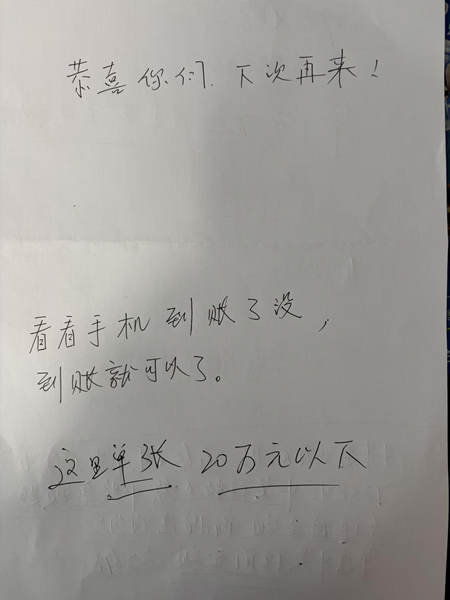 恭喜你们.下次再来!
看看手机到账了没,
到账就可以了。
这里单张 20万元以下